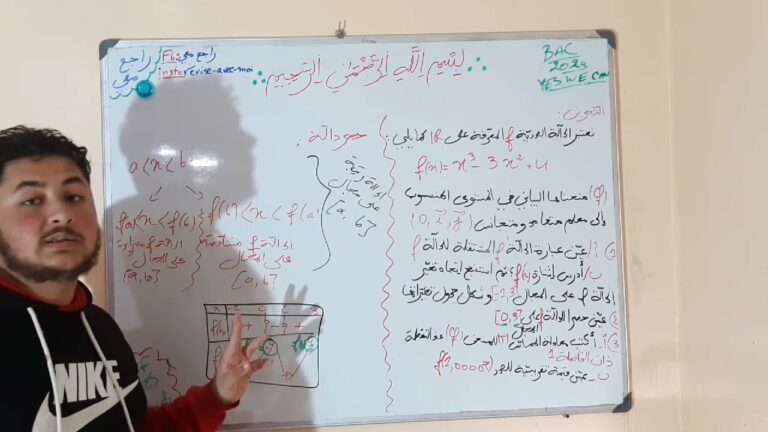 بسم الله الرحمن الرحيم
BAC
2024
YES WE CAN
راجع
معي
Fb: راجع معي
insta: revise-avec-moi
التمرين:
نعتبر الدالة العددية f المعرفة على IR كما يلي:
f(x) = x³ - 3x² + 4
(φ) منحناها البياني في المستوي المنسوب
إلى معلم متعامد ومتجانس (0, i, j)
1) أ/ عيّن عبارة الدالة f' المشتقة للدالة f
ب/ أدرس إشارة f'(x) ثم استنتج إتجاه تغيّر
الدالة f على المجال [-1,3] وشكل جدول تغيراتها
2) عيّن حصر الدالة على [0,3]
المجال
3) أ. أكتب معادلة المماس (T) للمنحنى (φ) عند النقطة
ذات الفاصلة 1
ب- عيّن قيمة تقريبية للعدد
حصر دالة:
الدالة رتيبة
على مجال
[a, b]
a < x < b
f(a) < x < f(b)
الدالة f متزايدة
على المجال
[a, b]
f(b) < x < f(a)
الدالة f متناقصة
على المجال
[a, b]
NIKE